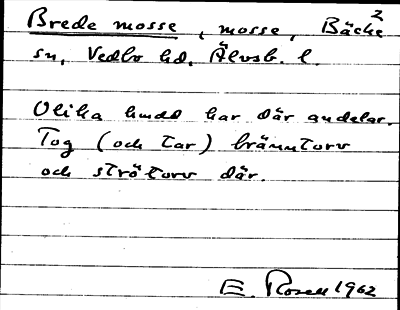 Brede mosse, mosse, Bäcke 2
sn, Vedbo hd, Älvsb. l.
Olika hmdd har där andelar.
Tog (och tar) bränntorv
och strötorv där.
E. Rosell 1962